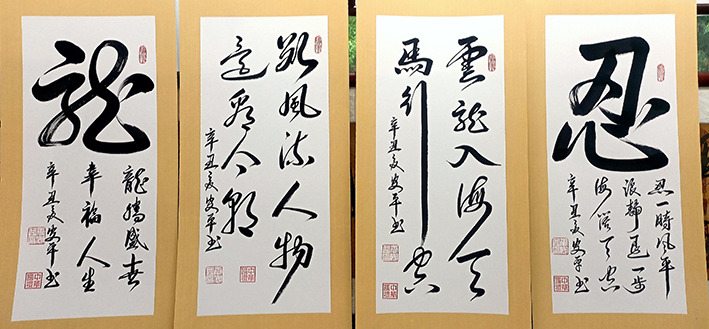 龍
龍騰盛世
幸福人生
辛丑夏安平书
數風流人物
還看今朝
辛丑夏安平书
雲龍入海天
馬行空
辛丑夏安平书
忍
忍一時風平
浪靜退一步
海阔天空
辛丑夏安平书